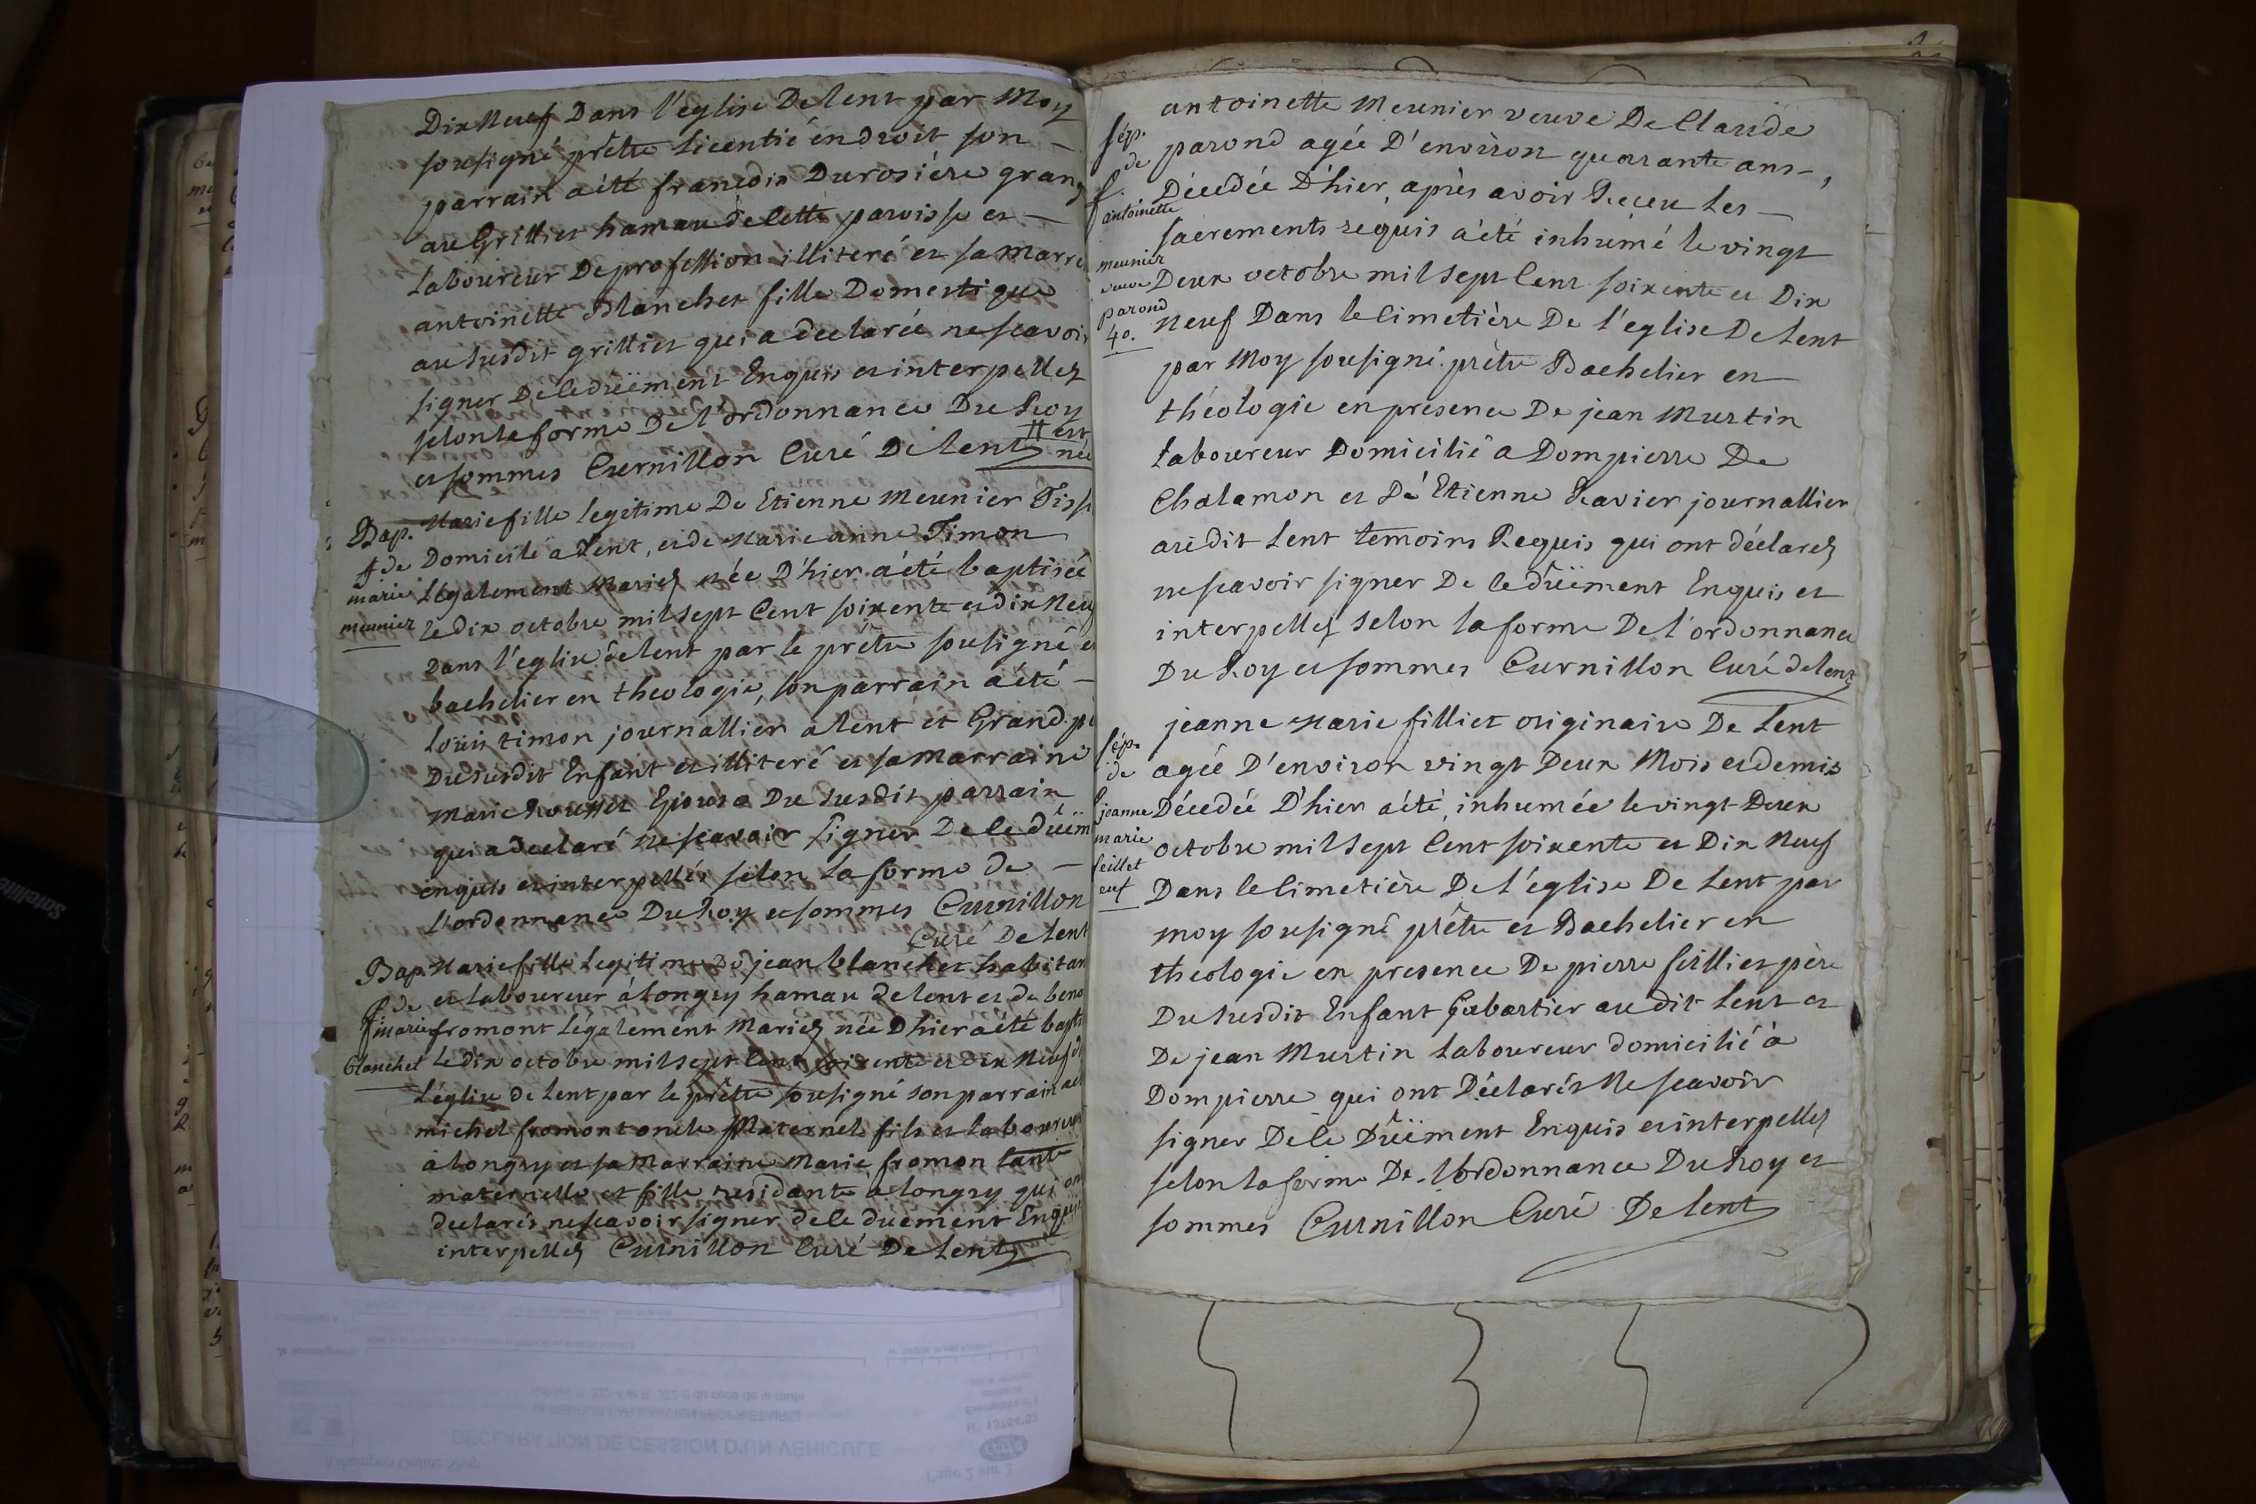 Dix Neuf Dans l'eglise De lent par Moy
sousigné prêtre licentié en droit son —
parrain a été francois Durosiére grang
au Grillier hamau de Cette paroisse et —
Laboureur De profession illiteré et sa marre
antoinette Blanchet fille Domestique
au susdit grillier qui a declarée ne scavoir
signer De ce dûëment Enquis et interpellez
selon la forme De l'ordonnance Du Roy
et sommes Curnillon Curé De lent # est
née
Bap.
de
f
marie
meunier
Marie fille legitime De Etienne Meunier Tiss
Domicilé a Lent, et de Marie anne Timon
Légalement Mariez née D'hier a été baptisée
le dix octobre mil sept Cent soixente et dix Neuf
Dans l'eglise de lent par le prêtre sousigné et
bachelier en theologie, son parrain a été —
Louis timon journallier a lent et Grand pe
Du susdit Enfant et illiteré et sa marraine
Marie Rousset Epouse Du susdit parrain
qui a declaré ne scavoir signer De ce dûëm
enquis et interpellés selon la forme de —
l'ordonnance Du Roy et sommes Curnillon
Curé De lent
Bap
de
f marie
blanchet
Marie fille Legitime De jean blanchet habitan
et laboureur à longry hamau de lent et de beno
fromont Légalement Mariez née D'hier a été bapti
Le Dix octobre mil sept Cent soixente et Dix Neuf d
L'église de lent par le prêtre sousigné son parrain a
michel fromont oncle Maternel fils et laboureur
à longry et sa Marraine Marie fromon tante
maternelle et fille residante a longry qui on
declarés ne scavoir signer de ce duement Enquis
interpellez Curnillon Curé De Lent
sép.
de
f.
antoinette
meunier
veuve
parond
40.
antoinette Meunier veuve De Claude
parond agée D'environ quarante ans —,
Décedée D'hier, après avoir Reçeu les —
sacrements requis a été inhumé le vingt
Deux octobre mil sept Cent soixente et Dix
Neuf Dans le Cimetière De l'eglise De Lent
par Moy sousigné prêtre Bachelier en
théologie en presence De jean Murtin
laboureur Domicilié a Dompierre De
Chalamon et De Etienne Ravier journallier
au dit Lent temoins Requis qui ont déclarez
ne scavoir signer De ce dûëment Enquis et
interpellez selon la forme De l'ordonnance
Du Roy et sommes Curnillon Curé de lent
sép.
de
jeanne
marie
feillet
enf
jeanne Marie fillier originaire De Lent
agée D'environ vingt Deux Mois et demis
Décedée D'hier a été, inhumée le vingt Deux
octobre mil sept Cent soixente et Dix Neuf
Dans le Cimetière De l'église De Lent par
moy sousigné prêtre et Bachelier en
theologie en presence De pierre feillier père
Du susdit Enfant Gabartier au dit Lent et
De jean Murtin laboureur domicilié à
Dompierre qui ont Déclarés Ne scavoir
signer De ce Dûëment Enquis et interpellez
selon la forme De l'ordonnance Du Roy et
sommes Curnillon Curé De lent